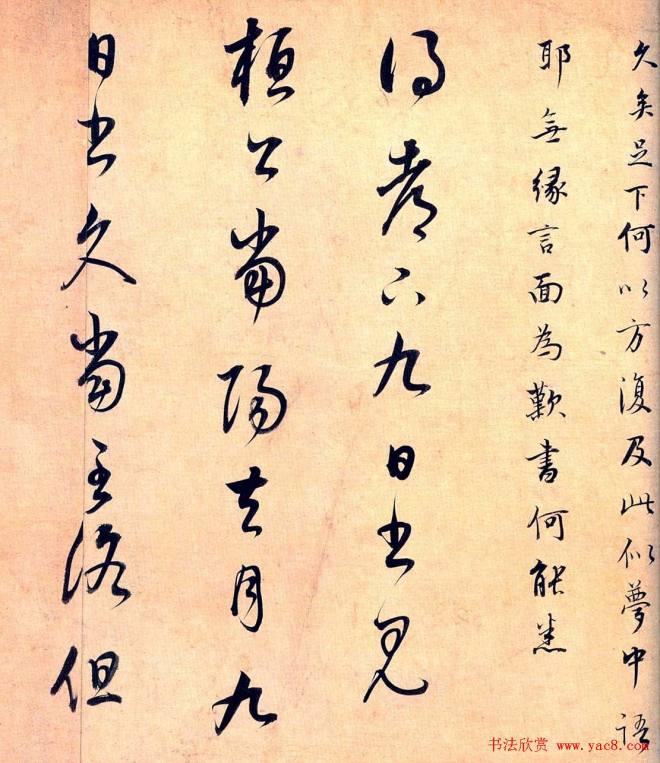 久矣足下何以方復及此似夢中語
耶無緣言面為歎書何能悉
得都下九日書見
桓公當陽去月九
日書久當至洛但
书法欣赏 www.yac8.com